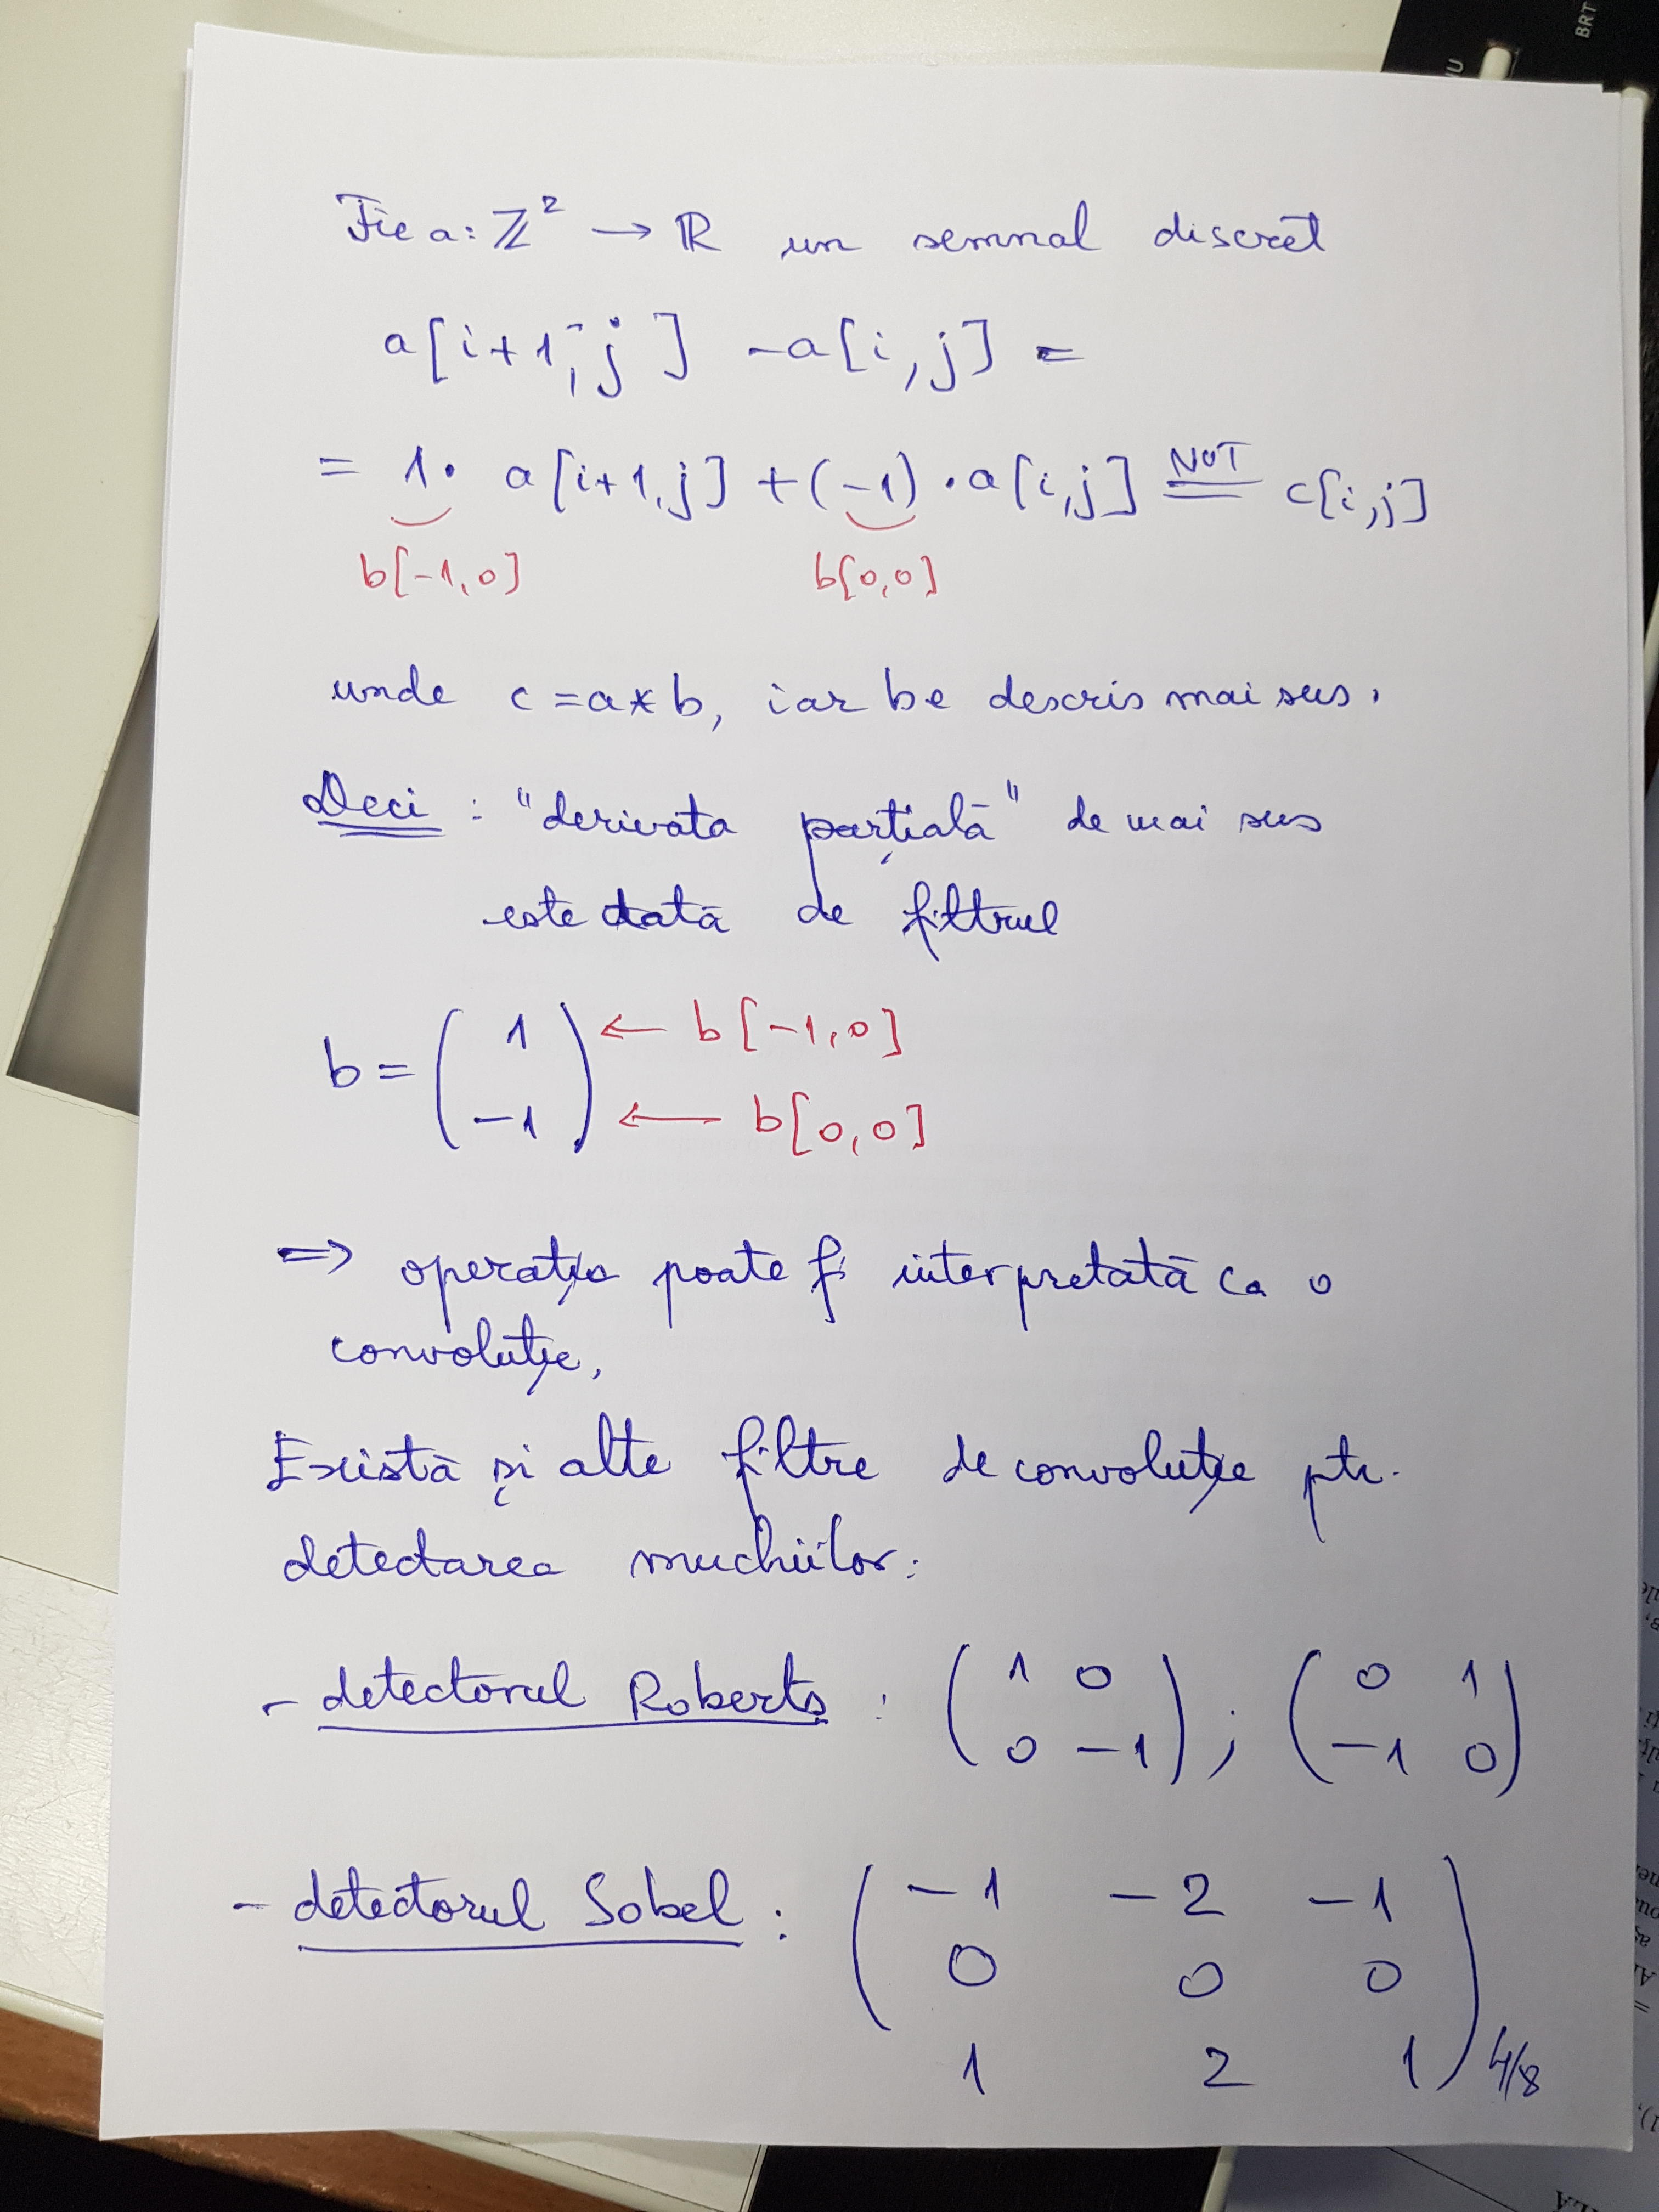 BRT
Fie a: ℤ² → ℝ un semnal discret
a[i+1, j] - a[i, j] =
= 1 · a[i+1, j] + (-1) · a[i, j] NOT== c[i, j]
b[-1, 0] b[0, 0]
unde c = a * b, iar b e descris mai sus.
Deci : "derivata parțială" de mai sus
este dată de filtrul
b = ( 1 ) ← b[-1, 0]
( -1 ) ← b[0, 0]
⇒ operația poate fi interpretată ca o
convoluție.
Există și alte filtre de convoluție ptr.
detectarea muchiilor:
- detectorul Roberts : ( 1 0 ; 0 -1 ) ; ( 0 1 ; -1 0 )
- detectorul Sobel : ( -1 -2 -1
0 0 0
1 2 1 )
4/8